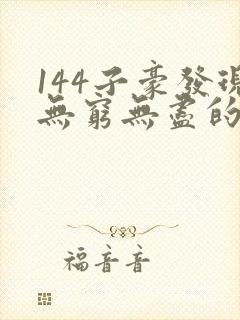 144子豪發現
無窮無盡的
福音音